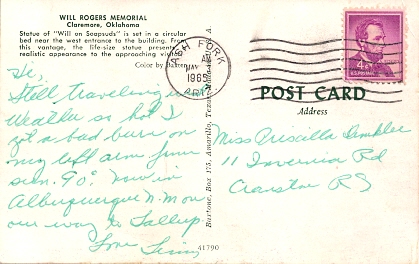 WILL ROGERS MEMORIAL
Claremore, Oklahoma
Statue of "Will on Soapsuds" is set in a circular
bed near the west entrance to the building. From
this vantage, the life-size statue presents
realistic appearance to the approaching
Color by
ASH FORK
AM
MAY
1965
ARIZ.
4¢
U.S. POSTAGE
POST CARD
Address
Hi,
Still traveling in
Weather so hot I
got a bad burn on
my left arm from
sun. 90° now in
Albuquerque N.M on
our way to Gallup.
Love
Baxtone, Box 175, Amarillo, Texas
Miss Priscilla
11 Rd
Cranston RI
41790